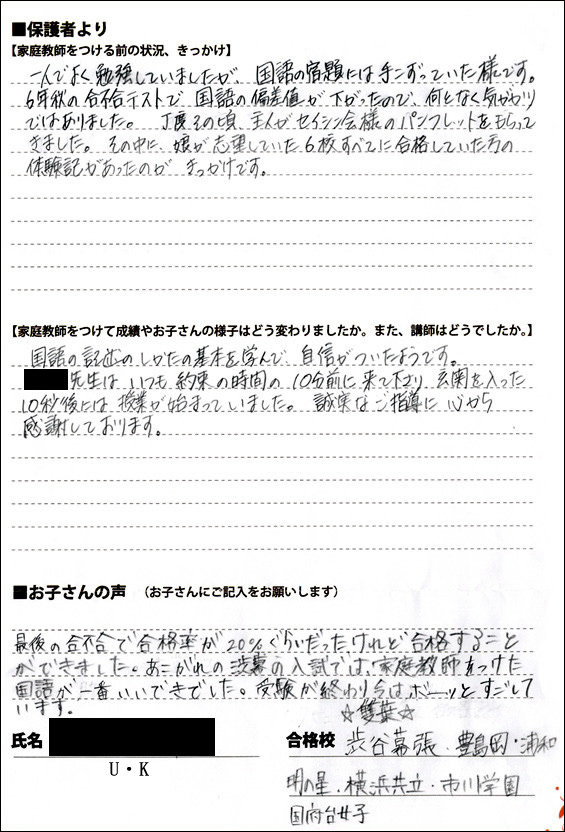 ■保護者より
【家庭教師をつける前の状況、きっかけ】
一人でよく勉強していましたが、国語の宿題には手こずっていた様です。
6年秋の合不合テストで、国語の偏差値が下がったので、何となく気がかり
ではありました。丁度その頃、主人がセイシン会様のパンフレットをもらって
きました。その中に、娘が志望していた6校すべてに合格していた方の
体験記があったのが きっかけです。
【家庭教師をつけて成績やお子さんの様子はどう変わりましたか。また、講師はどうでしたか。】
国語の記述のしかたの基本を学んで、自信がついたようです。
先生は いつも 約束の時間の10分前に来て下さり、玄関を入った
10秒後には 授業が始まっていました。誠実なご指導に 心から
感謝しております。
■お子さんの声 （お子さんにご記入をお願いします）
最後の合不合で合格率が20%ぐらいだったけれど合格すること
ができました。あこがれの渋幕の入試では、家庭教師をつけた
国語が一番いいできでした。受験が終わり今はボーッとすごして
います。
☆雙葉☆
氏名
合格校 渋谷幕張・豊島岡・浦和
U・K
明の星・横浜共立・市川学園
国府台女子